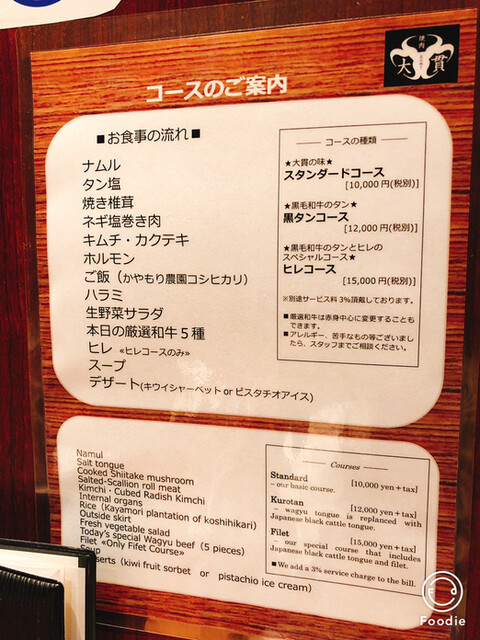 焼肉
大貫
コースのご案内
■お食事の流れ■
ナムル
タン塩
焼き椎茸
ネギ塩巻き肉
キムチ・カクテキ
ホルモン
ご飯（かやもり農園コシヒカリ）
ハラミ
生野菜サラダ
本日の厳選和牛５種
ヒレ «ヒレコースのみ»
スープ
デザート(キウイシャーベット or ピスタチオアイス)
コースの種類
★大貫の味★
スタンダードコース
[10,000 円(税別)]
★黒毛和牛のタン★
黒タンコース
[12,000 円(税別)]
★黒毛和牛のタンとヒレの
スペシャルコース★
ヒレコース
[15,000 円(税別)]
※別途サービス料 3%頂戴しております。
■厳選和牛は赤身中心に変更することも
できます。
■アレルギー、苦手なもの等ございまし
たら、スタッフまでご相談ください。
Namul
Salt tongue
Cooked Shiitake mushroom
Salted-Scallion roll meat
Kimchi・Cubed Radish Kimchi
Internal organs
Rice（Kayamori plantation of koshihikari）
Outside skirt
Fresh vegetable salad
Today's special Wagyu beef（5 pieces）
Filet «Only Fifet Course»
Soup
sserts（kiwi fruit sorbet or pistachio ice cream）
Courses
Standard
– our basic course. [10,000 yen＋tax]
Kurotan [12,000 yen＋tax]
– wagyu tongue is replanced with
Japanese black cattle tongue.
Filet [15,000 yen＋tax]
– our special course that includes
Japanese black cattle tongue and filet.
■We add a 3% service charge to the bill.
Foodie